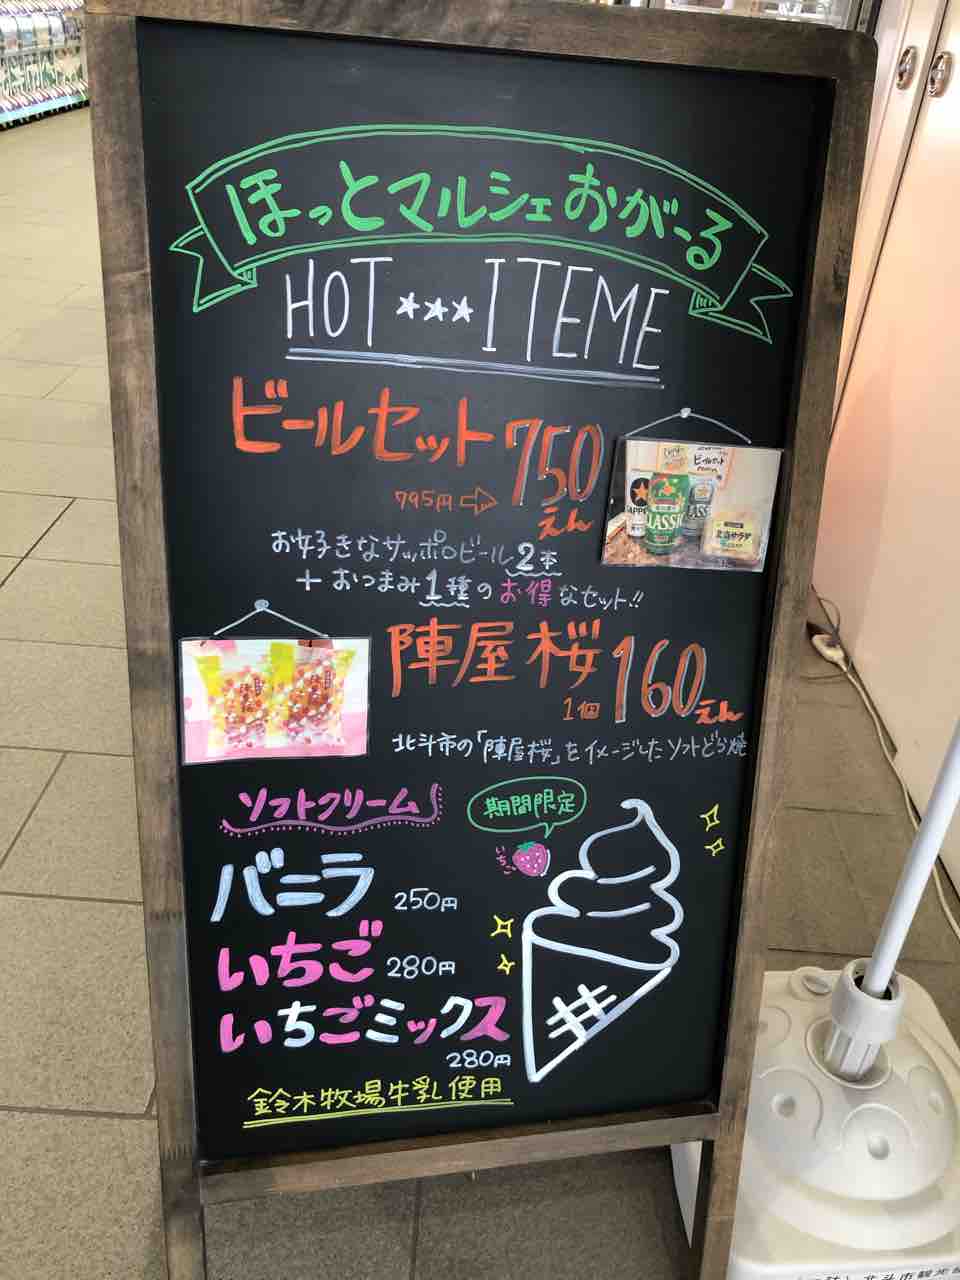 ほっとマルシェおがーる
HOT ★★★ ITEME
ビールセット 750えん
795円⇨
お好きなサッポロビール2本
+おつまみ1種のお得なセット!!
ビールセット
CLASSIC
陣屋桜 1個 160えん
北斗市の「陣屋桜」をイメージしたソフトどら焼
ソフトクリーム
期間限定
いちご
バニラ 250円
いちご 280円
いちごミックス
280円
鈴木牧場牛乳使用